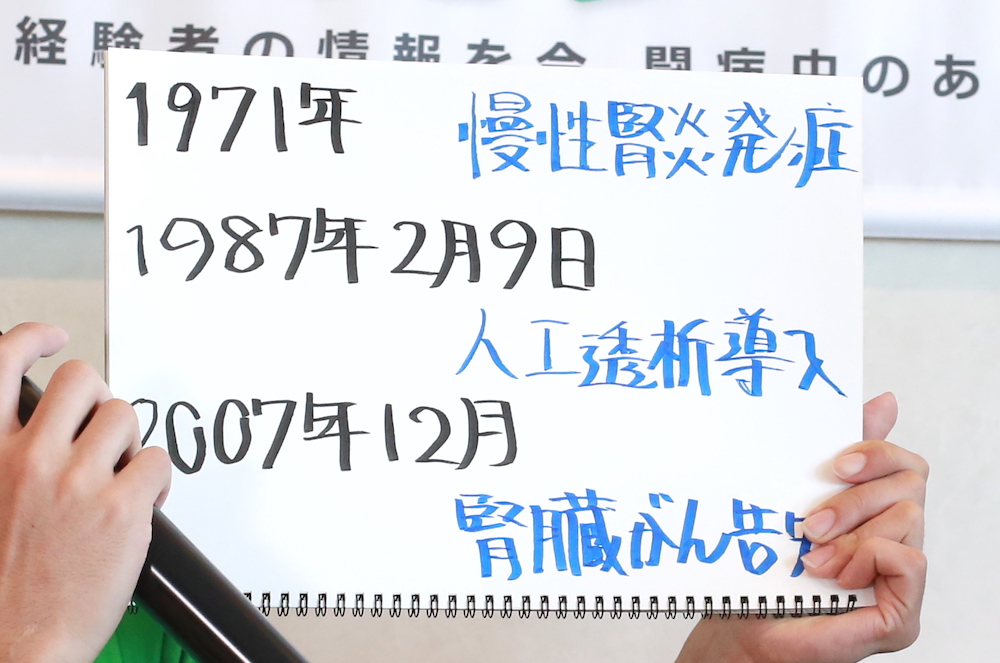 経験者の情報を今 闘病中のあ
1971年
慢性腎炎発症
1987年2月9日
人工透析導入
2007年12月
腎臓がん告知